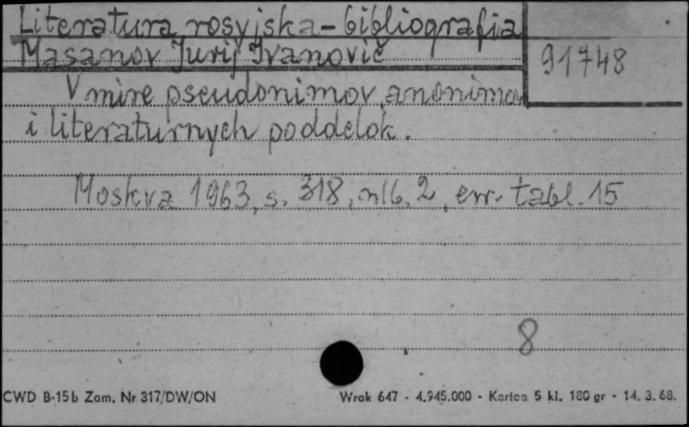 Literatura rosyjska-bibliografia
Masanov Jurij Ivanovič
91748
V mire pseudonimov, anonimov
i literaturnych poddelok.
Moskva 1963, s. 318, nlb. 2, err. tabl. 15
8
CWD B-15b Zam. Nr 317/DW/ON
Wrak 647 - 4.945.000 - Karton 5 kl. 180 gr - 14. 3. 68.